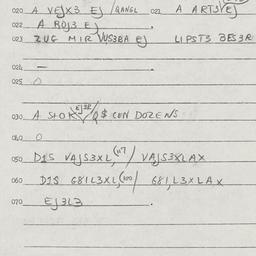 020 A VEJX3 EJ /QANGL 021 A ARTS
022 A ROJ3 EJ
023 ZUG MIR VUS3BA EJ LIPSTS BES3R
024 —
025 0
030 A STOK / Q$ CON DOZENS
040 0
050 D1S VAJS3XL, / VAJS3XLAX
060 D1S G81L3XL, (100) / G81,L3XLAX
070 EJ3L3